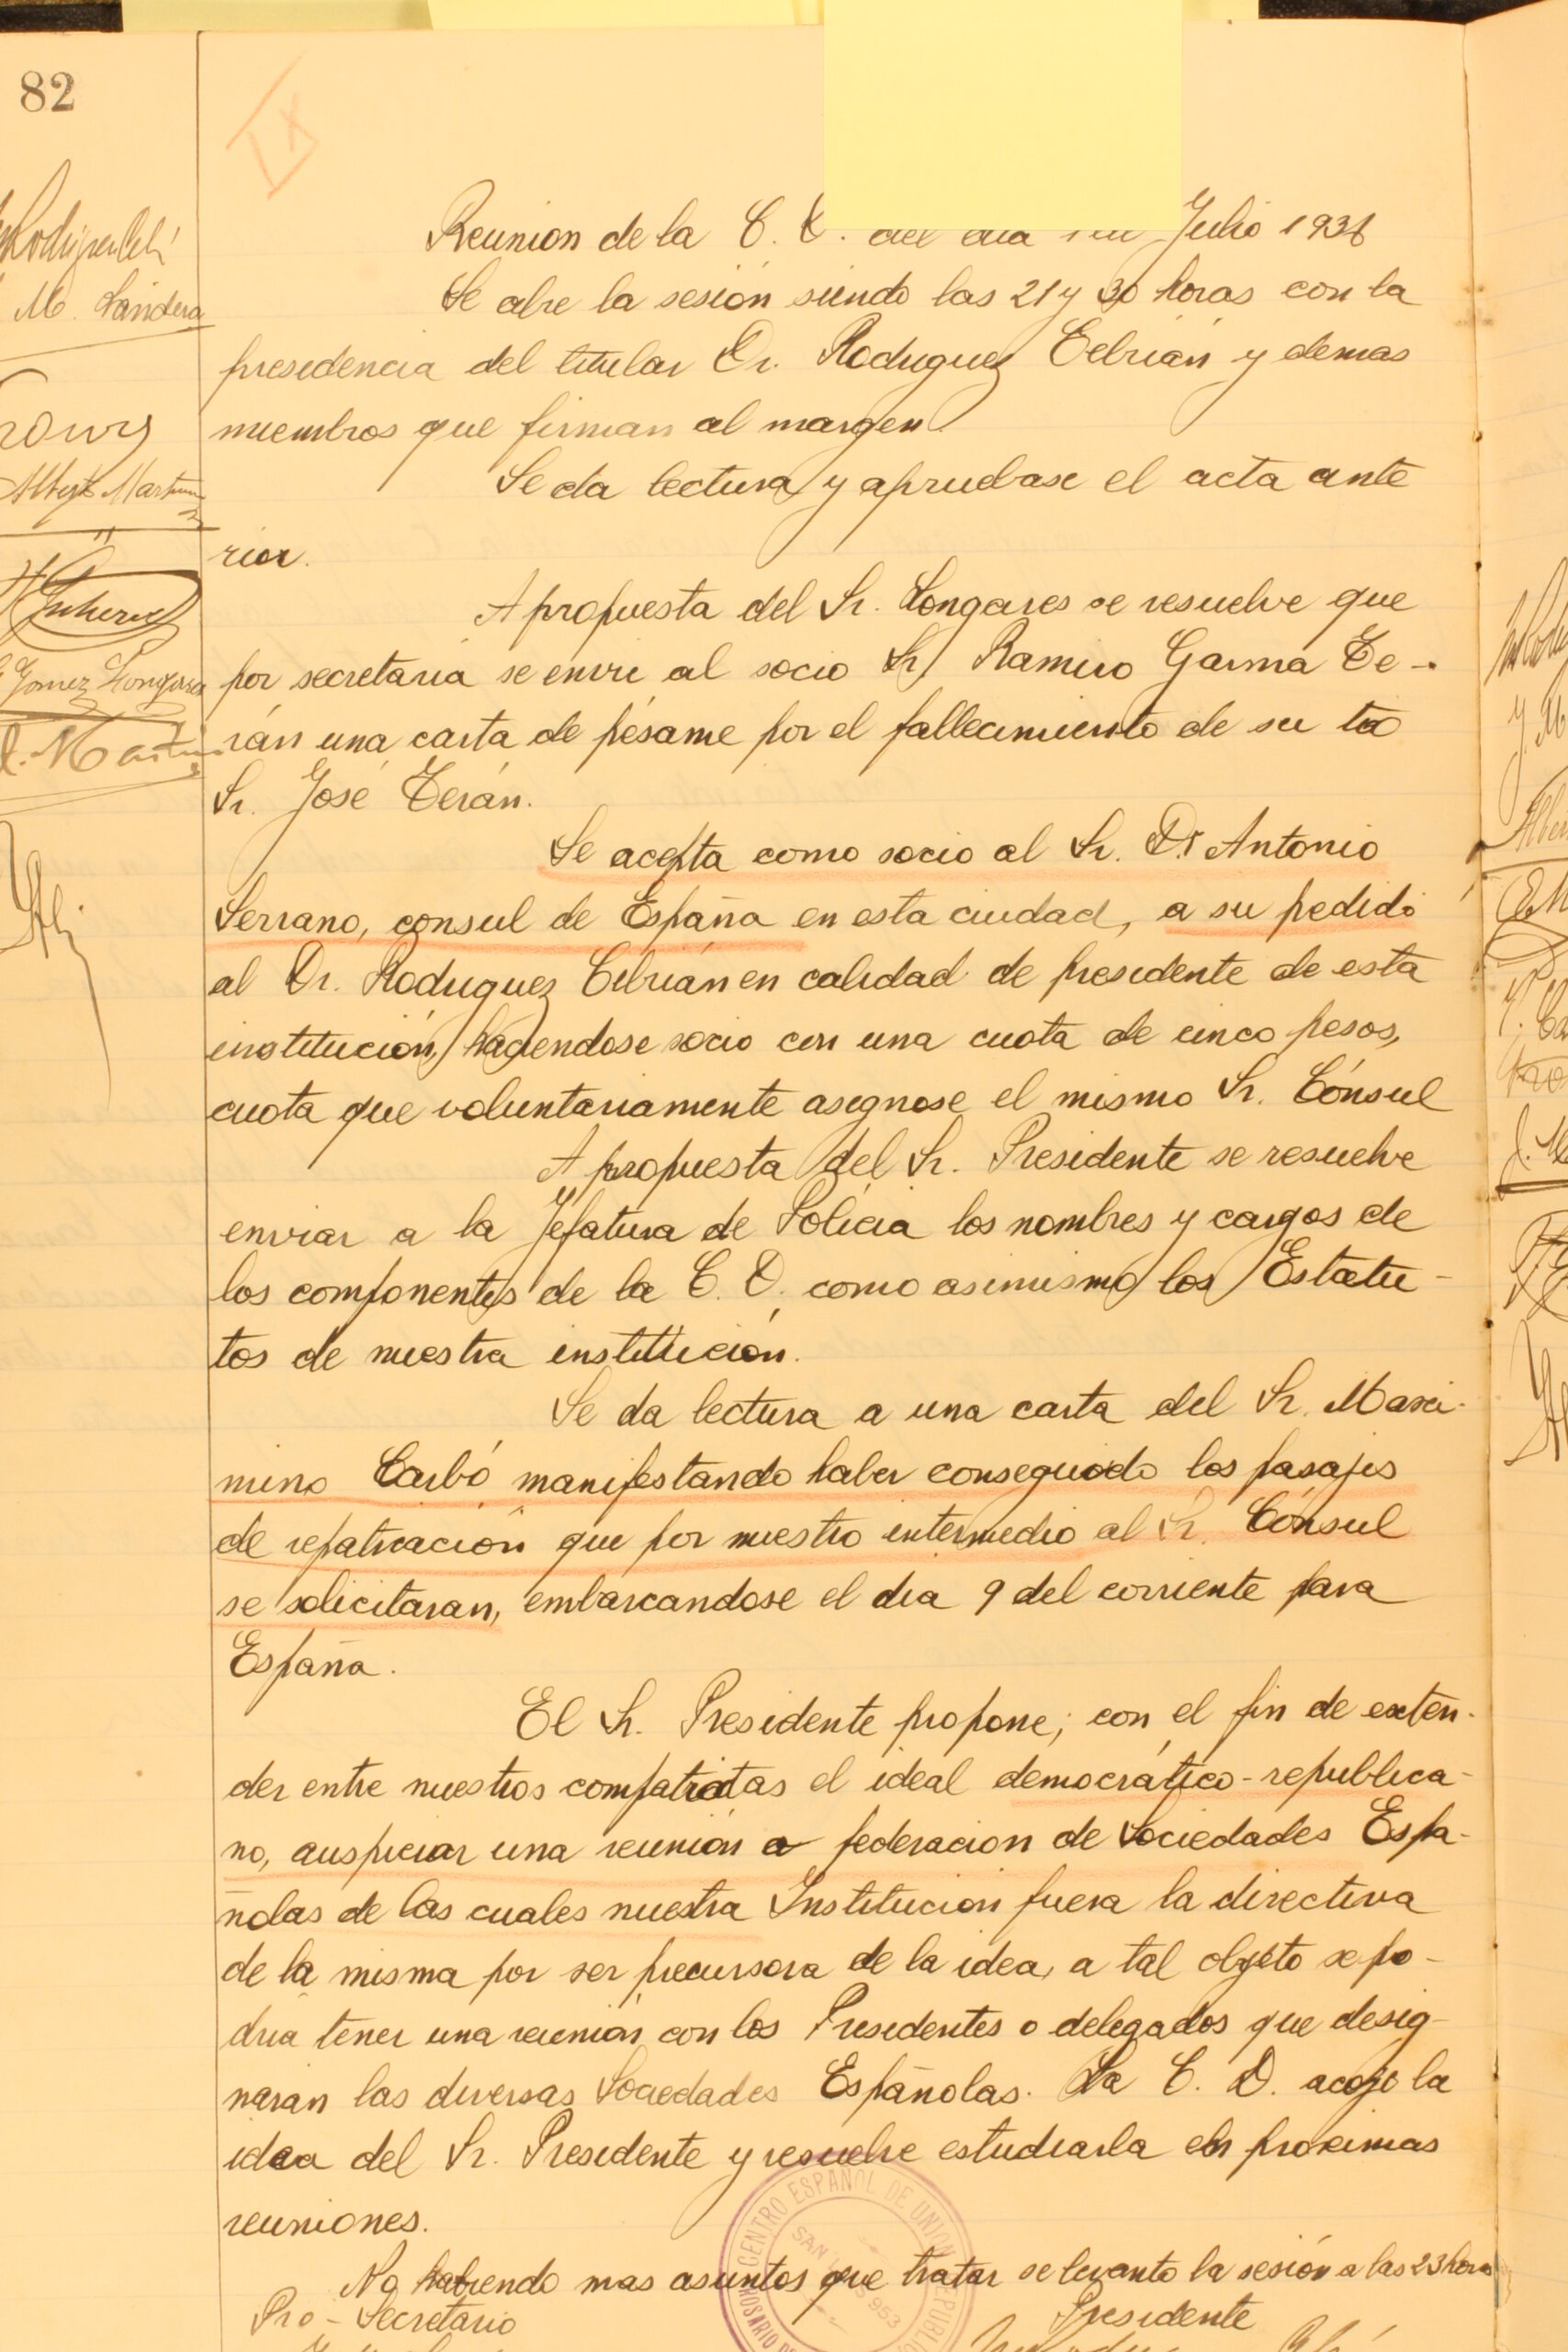 82
M. Landera
Gomez Longares
Reunion de la C. D. del dia Julio 1931
Se abre la sesión siendo las 21 y 30 horas con la
presedencia del titular Dr. Rodriguez Cebrián y demas
miembros que firman al margen.
Se da lectura y apruebase el acta ante
rior.
A propuesta del Sr. Longares se resuelve que
por secretaria se envie al socio Sr. Ramiro Garma Te-
rán una carta de pésame por el fallecimiento de su tio
Sr. José Terán.
Se acepta como socio al Sr. Dn Antonio
Serrano, consul de España en esta ciudad, a su pedido
al Dr. Rodriguez Cebrián en calidad de presidente de esta
institución, haciendose socio con una cuota de cinco pesos,
cuota que voluntariamente asegnose el mismo Sr. Cónsul
A propuesta del Sr. Presidente se resuelve
enviar a la Jefatura de Policia los nombres y cargos de
los componentes de la C. D. como asimismo los Estatu-
tos de nuestra institución.
Se da lectura a una carta del Sr. Maxi-
mino Carbó manifestando haber conseguido los pasajes
de repatriación que por nuestro intermedio al Sr. Cónsul
se solicitaran, embarcandose el dia 9 del corriente para
España.
El Sr. Presidente propone; con el fin de exten-
der entre nuestros compatriotas el ideal democrático-republica-
no, auspiciar una reunión o federacion de Sociedades Espa-
ñolas de las cuales nuestra Institucion fuera la directiva
de la misma por ser precursora de la idea, a tal objeto se po-
dria tener una reunión con los Presidentes o delegados que desig-
naran las diversas Sociedades Españolas. La C. D. acoje la
idea del Sr. Presidente y resuelve estudiarla en proximas
reuniones.
No habiendo mas asuntos que tratar se levanto la sesión a las 23 horas
Pro-Secretario Presidente
CENTRO ESPAÑOL DE UNION REPUBLIC
ROSARIO DE
SAN LUIS 953